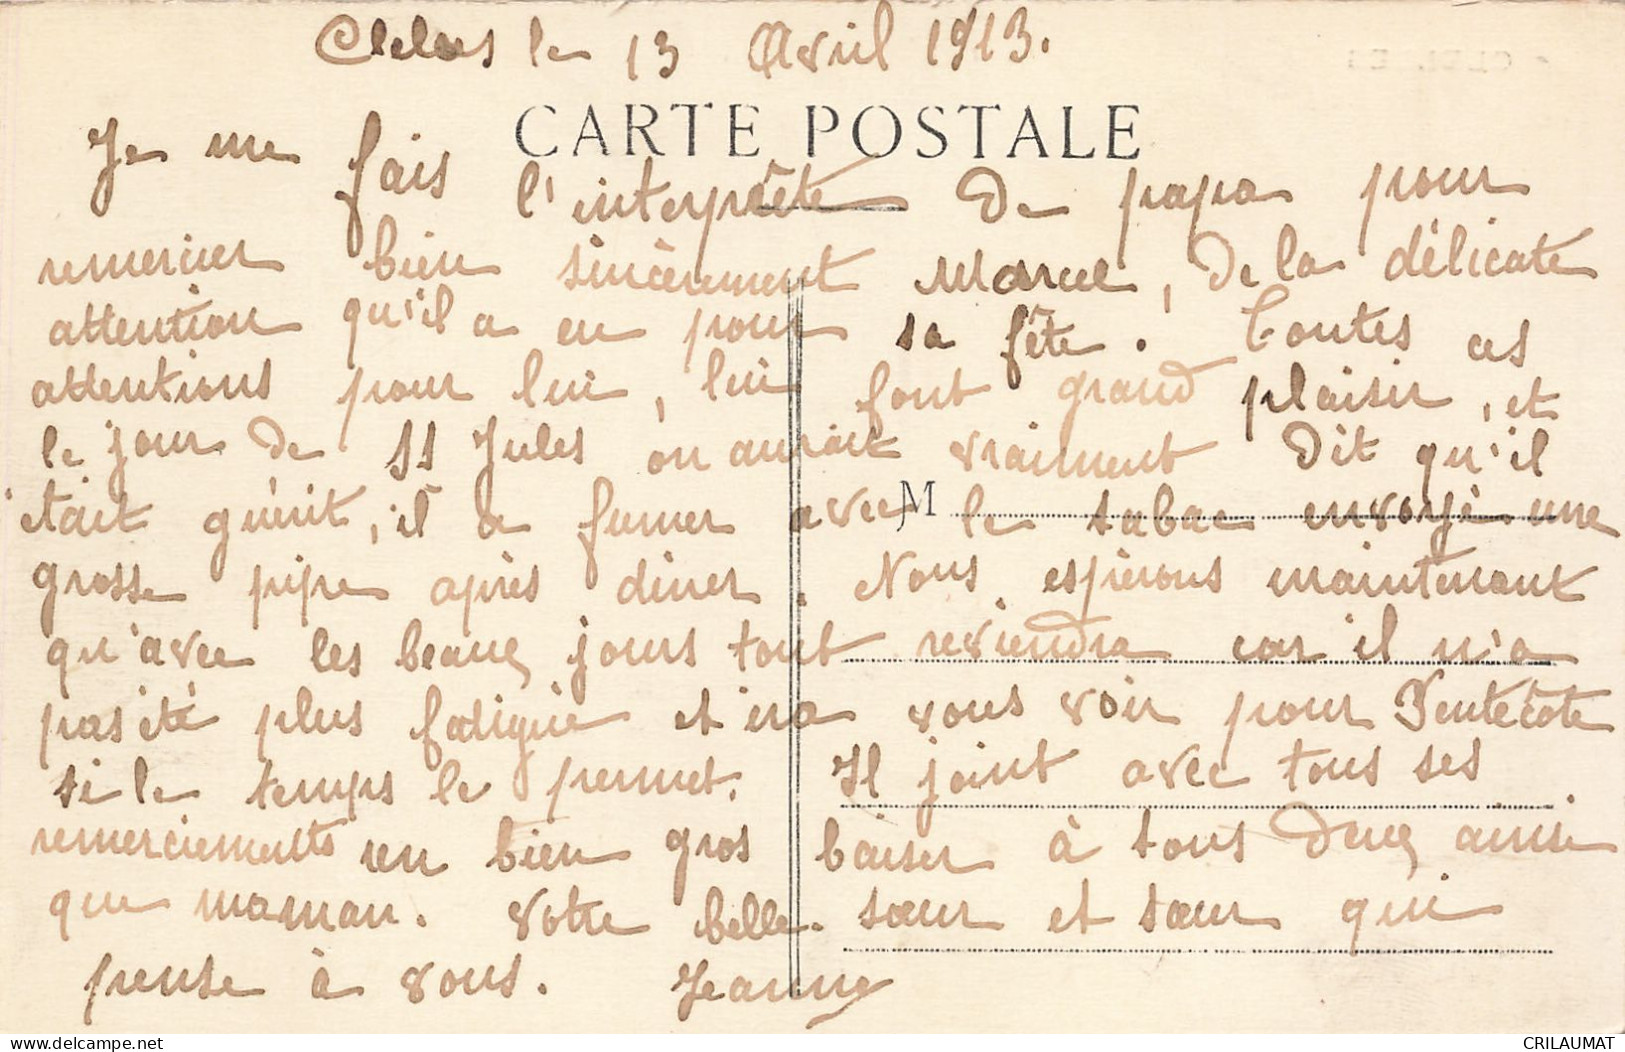 le 13 Avril 1913.
CARTE POSTALE
Je me fais l'interprète de papa pour
remercier bien sincèrement Marcel, de la délicate
attention qu'il a eu pour sa fête. Toutes ces
attentions pour lui, lui font grand plaisir, et
le jour de St Jules on aurait vraiment dit qu'il
était guérit, il a fumer avec le tabac envoyé une
M
grosse pipe après diner. Nous espérons maintenant
qu'avec les beaux jours tout reviendra car il n'a
pas été plus fatigué et ira vous voir pour Pentecôte
si le temps le permet. Il joint avec tous ses
remerciements un bien gros baiser à tous deux ainsi
que maman. Votre belle-sœur et sœur qui
pense à vous. Jeanne
delcampe.net
CRILAUMAT